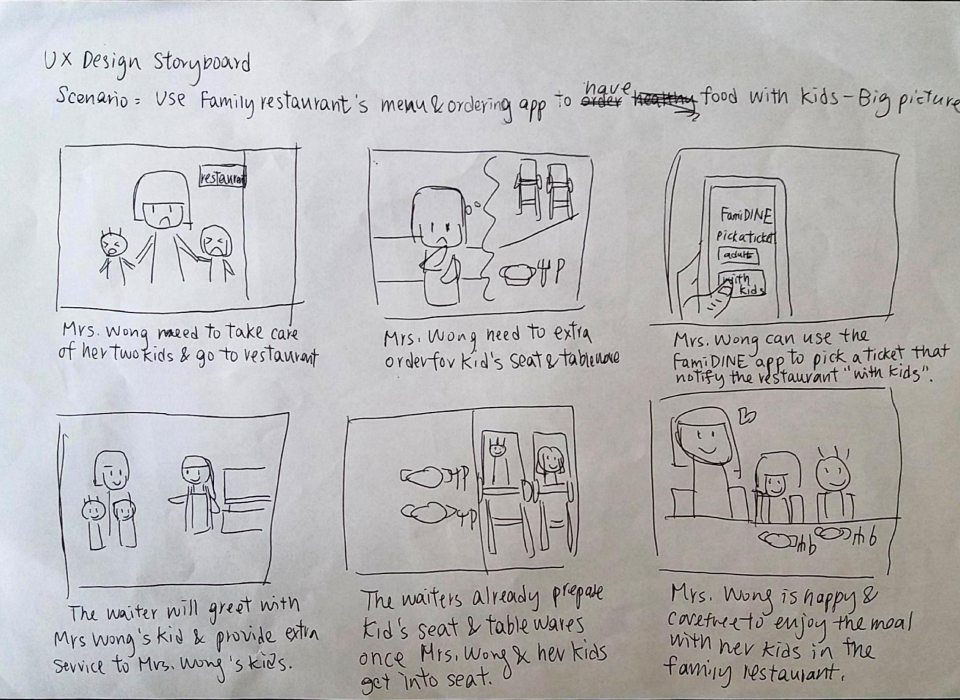 UX Design Storyboard
Scenario = Use Family restaurant's menu & ordering app to have order healthy food with kids - Big picture
restaurant
FamiDINE
pick a ticket
adult
with
kids
Mrs. Wong need to take care
of her two kids & go to restaurant
Mrs. Wong need to extra
order for kid's seat & tableware
Mrs. Wong can use the
FamiDINE app to pick a ticket that
notify the restaurant "with kids".
The waiter will greet with
Mrs Wong's kid & provide extra
service to Mrs. Wong's kids.
The waiters already prepare
kid's seat & tablewares
once Mrs. Wong & her kids
get into seat.
Mrs. Wong is happy &
carefree to enjoy the meal
with her kids in the
family restaurant.